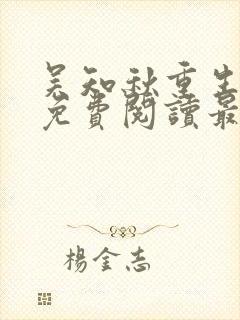 吴知秋重生
免費閱讀最
楊金志